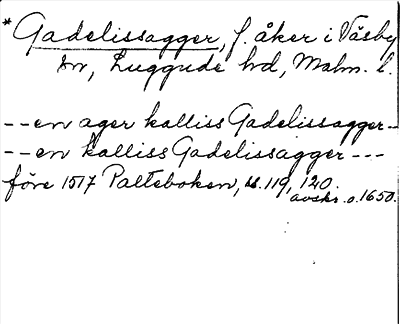 *Gadelissagger, f. åker i Väsby
sn, Luggude hd, Malm. l.
--en ager kalliss Gadelissagger--
--en kalliss Gadelissagger---
före 1517 Palteboken, s. 119, 120.
avskr. o. 1650.